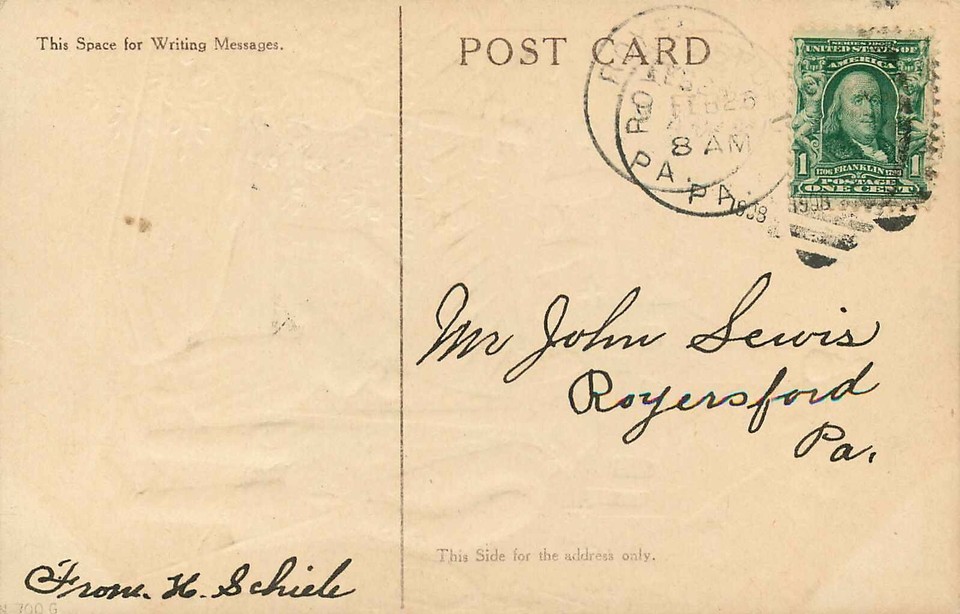 This Space for Writing Messages.
POST CARD
ROYE
FEB 26
8 AM
PA.
PA.
1908
SERIES 1902
UNITED STATES OF
AMERICA
1 1
1706 FRANKLIN 1790
POSTAGE
ONE CENT
Mr John Lewis
Royersford
Pa.
This Side for the address only.
From. H. Schiele
700 G